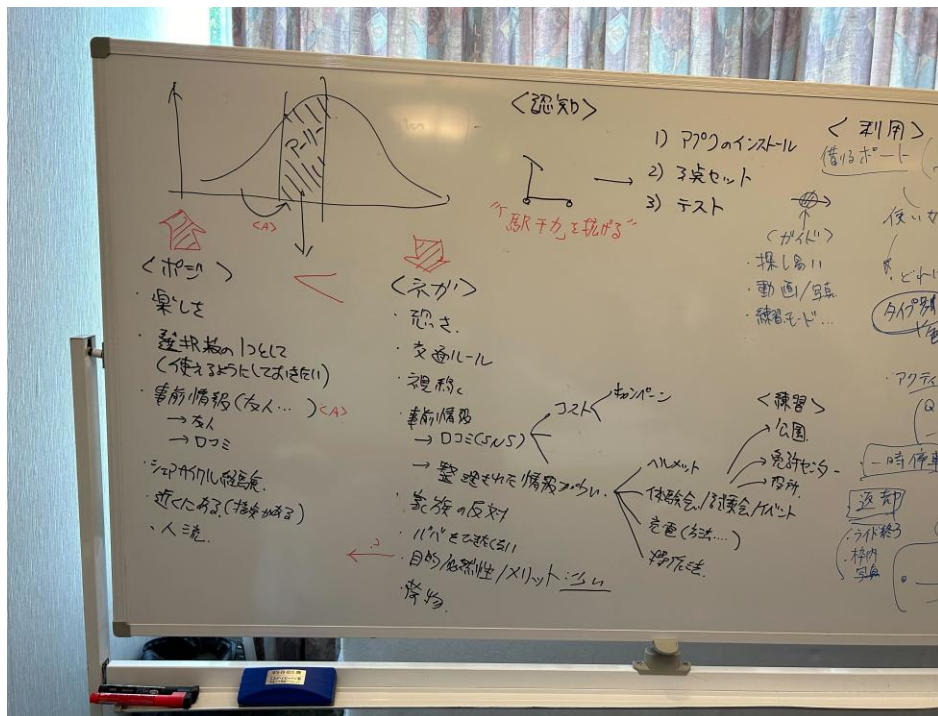 アーリー
<A>
<ポジ>
・楽しさ
・選択肢の1つとして
(使えるようにしておきたい)
・事前情報(友人…) <A>
→友人
→口コミ
・シェアサイクル経験
・近くにある.(指案がある)
・人流.
<認知>
1) アプリのインストール
2)
3) テスト
"「駅チカ」を拡げる"
<ネガ>
・恐さ.
・交通ルール
・視線
・事前情報
→口コミ(SNS)
→整理された情報がない.
・家族の反対
・目的/必然性/メリット:ない
・荷物.
?
コスト
キャンペーン
ヘルメット
体験会/試乗会/イベント
充電(方法…)
操作方法.
<練習>
公園.
免許センター
役所.
<利用>
借りるポート
<ガイド>
・探し易い
・動画/写真
・練習モード…
使い
・どれ
タイプ別
・アクティ
Q
一時停車
返却
・ライド終了
・枠内
写真